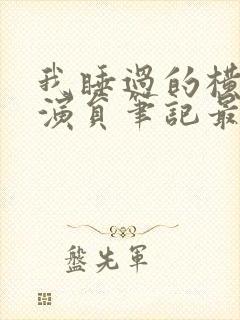 我睡過的橫
演員筆記最
盤先軍